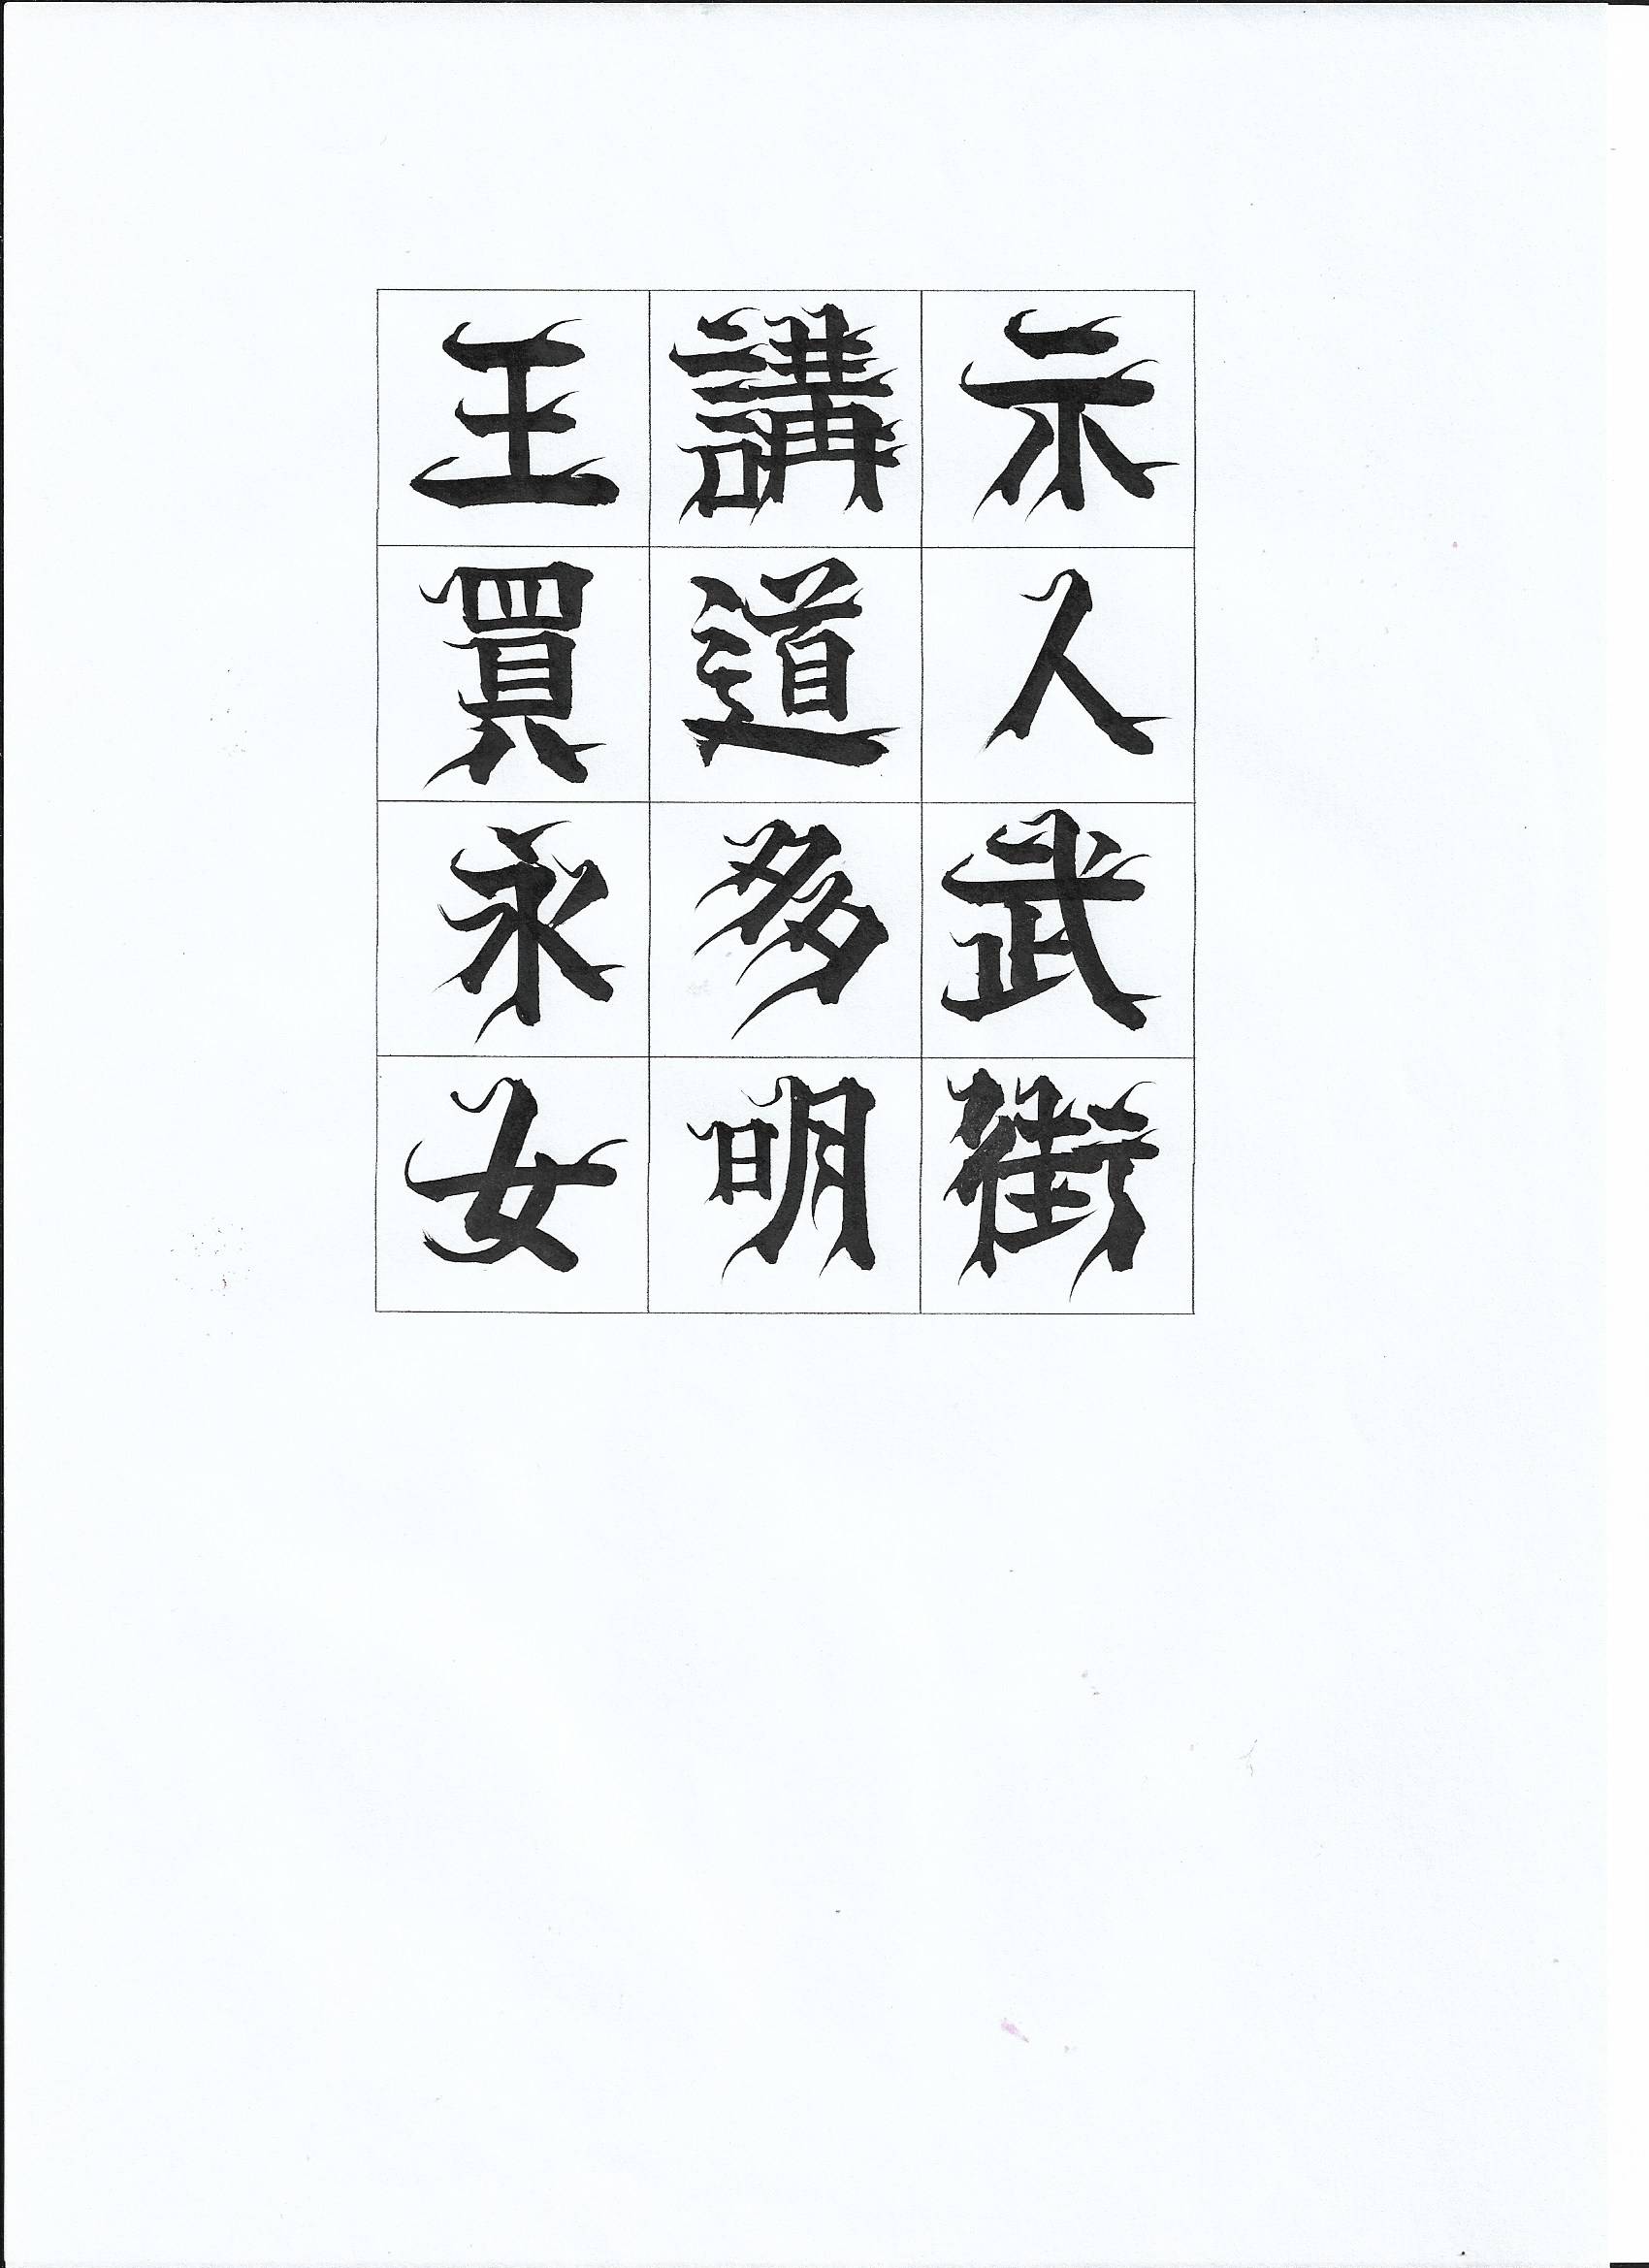 王 講 示
買 道 人
永 多 武
女 明 街